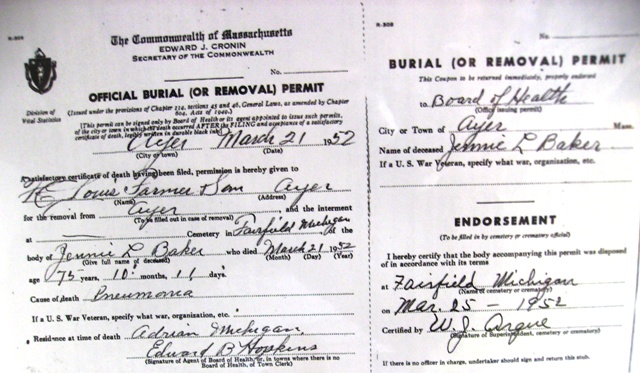 R-308
The Commonwealth of Massachusetts
EDWARD J. CRONIN
SECRETARY OF THE COMMONWEALTH
No.
OFFICIAL BURIAL (OR REMOVAL) PERMIT
Division of
Vital Statistics
(Issued under the provisions of Chapter 114, sections 45 and 46, General Laws, as amended by Chapter
604, Acts of 1941.)
(This permit can be signed only by Board of Health or its agent appointed to issue such permits,
of the city or town in which the death occurred AFTER the FILING and acceptance of a satisfactory
certificate of death, legibly written in durable black ink)
Ayer March 21 1952
(City or town) (Date)
A satisfactory certificate of death having been filed, permission is hereby given to
Louis Farmer & Son Ayer
(Name) (Address)
for the removal from Ayer, and the interment
(To be filled out in case of removal)
at Cemetery in Fairfield Michigan
body of Jennie L Baker who died March 21 1952
(Give full name of deceased) (Month) (Day) (Year)
age 75 years, 10 months, 11 days.
Cause of death Pneumonia
If a U. S. War Veteran, specify what war, organization, etc.
Residence at time of death Adrian Michigan
Edward B Hopkins
(Signature of Agent of Board of Health or, in towns where there is no
Board of Health, of Town Clerk)
R-308
BURIAL (OR REMOVAL) PERMIT
This Coupon to be returned immediately, properly endorsed
No.
to Board of Health
(Office issuing permit)
City or Town of Ayer Mass.
Name of deceased Jennie L Baker
If a U. S. War Veteran, specify what war, organisation, etc.
ENDORSEMENT
(To be filled in by cemetery or crematory official)
I hereby certify that the body accompanying this permit was disposed
of in accordance with its terms
at Fairfield Michigan
(Name of cemetery or crematory)
on Mar. 25 - 1952
Certified by W. J. Argue
(Signature of Superintendent, cemetery or crematory)
If there is no officer in charge, undertaker should sign and return this stub.